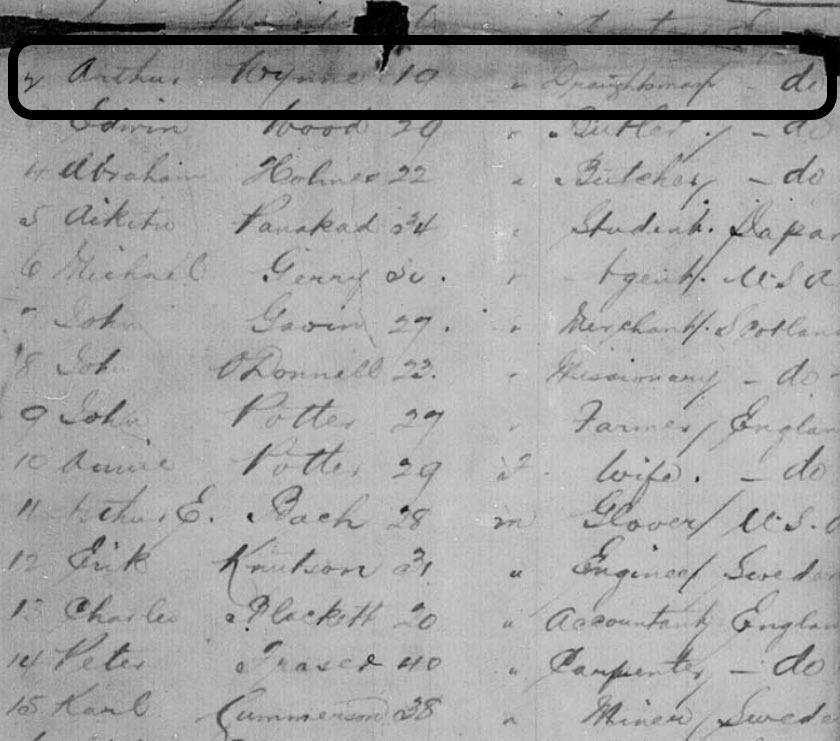 2 Arthur Wynne 19 " Draughtsman - do
Edwin Wood 29 " Butler - do
4 Abraham Holmes 22 " Butcher - do
5 34 " Student. Japan
6 Michael Gerry 30. " Agent. U.S.A
7 John Gavin 27. " Merchant. Scotland
8 John O'Donnell 23. " Missionary - do -
9 John Potter 29 " Farmer England
10 Annie Potter 29 wife. - do
11 Arthur E. Bach 28 m Glover U.S.A
12 Erik Knutson 31 " Engineer Sweden
13 Charles Plackett 20 " Accountant England
14 Peter Fraser 40 " Carpenter - do
15 Karl 38 " Miner Sweden